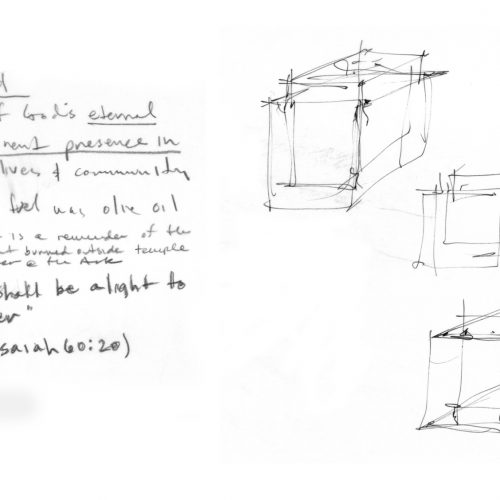 d
f God's eternal
nent presence in
lives & community
fuel was olive oil
is a reminder of the
t burned outside temple
er @ the Ark
shall be a light to
er"
saiah 60:20)